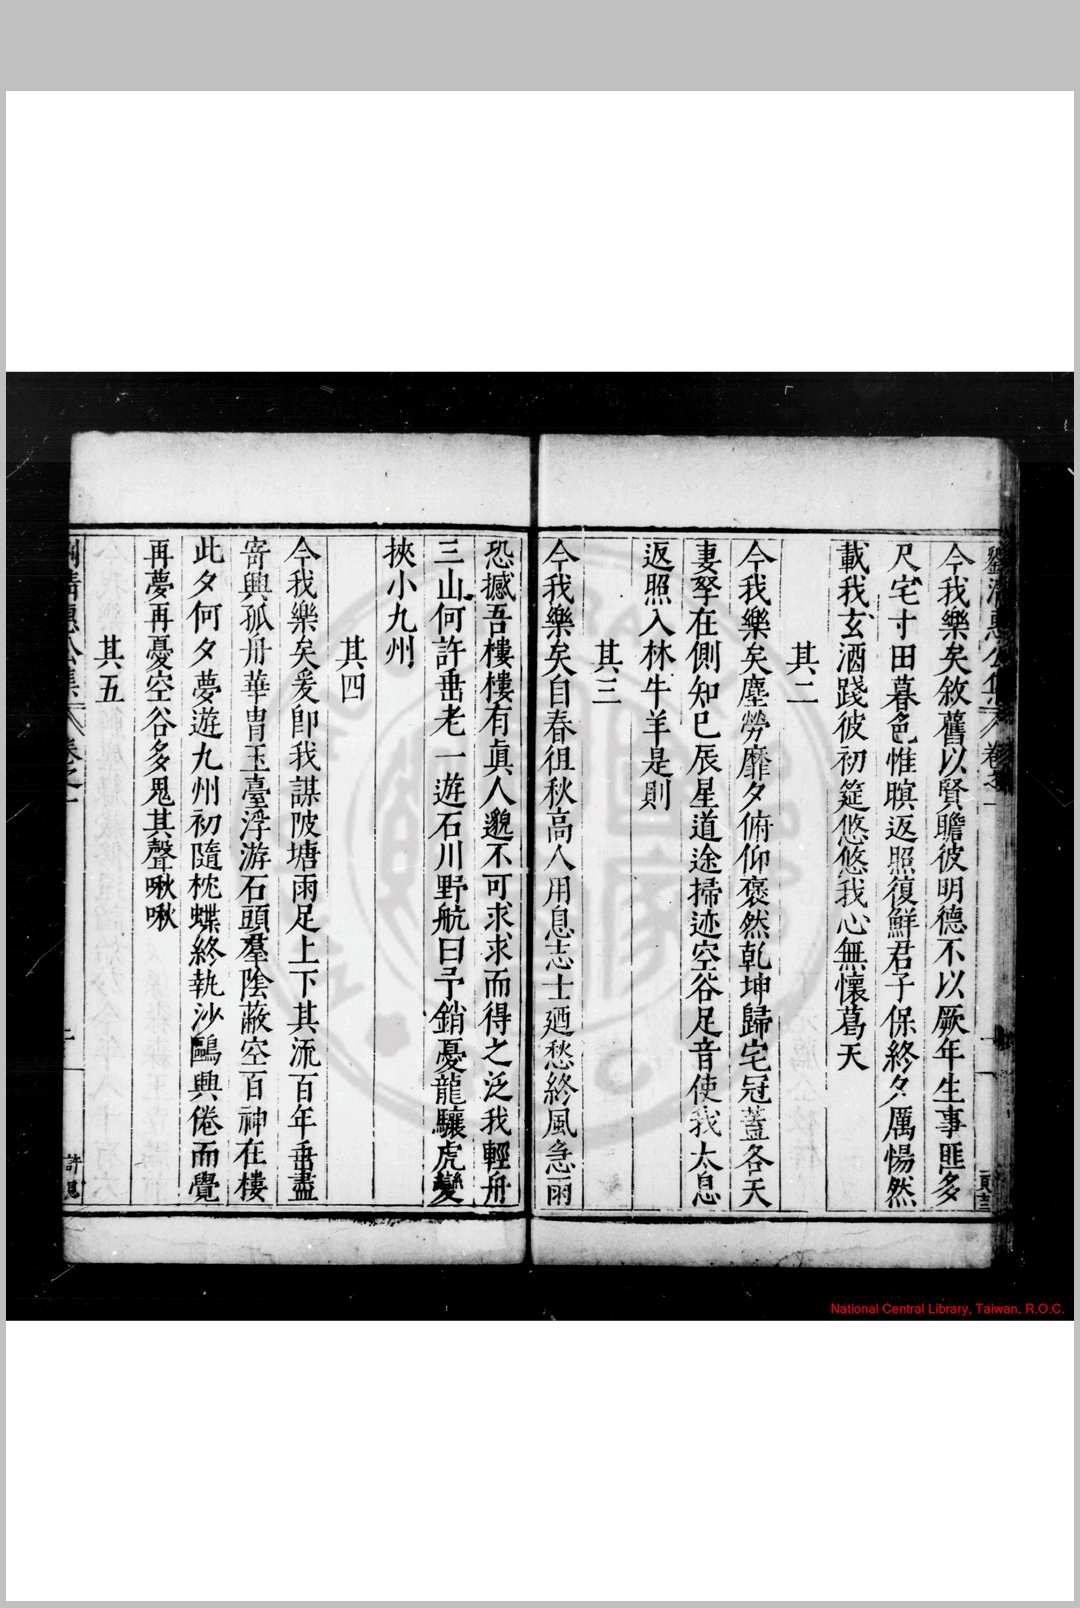 今我樂矣敘舊以賢瞻彼明德不以厥年生事匪多
尺宅寸田暮色惟暝返照復鮮君子保終夕厲惕然
載我玄酒踐彼初筵悠悠我心無懷葛天
其二
今我樂矣塵勞靡夕俯仰褒然乾坤歸宅冠蓋各天
妻孥在側知已辰星道途掃迹空谷足音使我太息
返照入林牛羊是則
其三
今我樂矣自春徂秋高人用息志士廼愁終風急雨
恐撼吾樓樓有眞人邈不可求求而得之泛我輕舟
三山何許垂老一遊石川野航曰予銷憂龍驤虎變
挾小九州
其四
今我樂矣爰卽我謀陂塘雨足上下其流百年垂盡
寄興孤舟華胄玉臺浮游石頭羣陰蔽空百神在樓
此夕何夕夢遊九州初隨枕蝶終執沙鷗興倦而覺
再夢再憂空谷多鬼其聲啾啾
其五
清惠公集 卷之一
許
National Central Library, Taiwan, R.O.C.